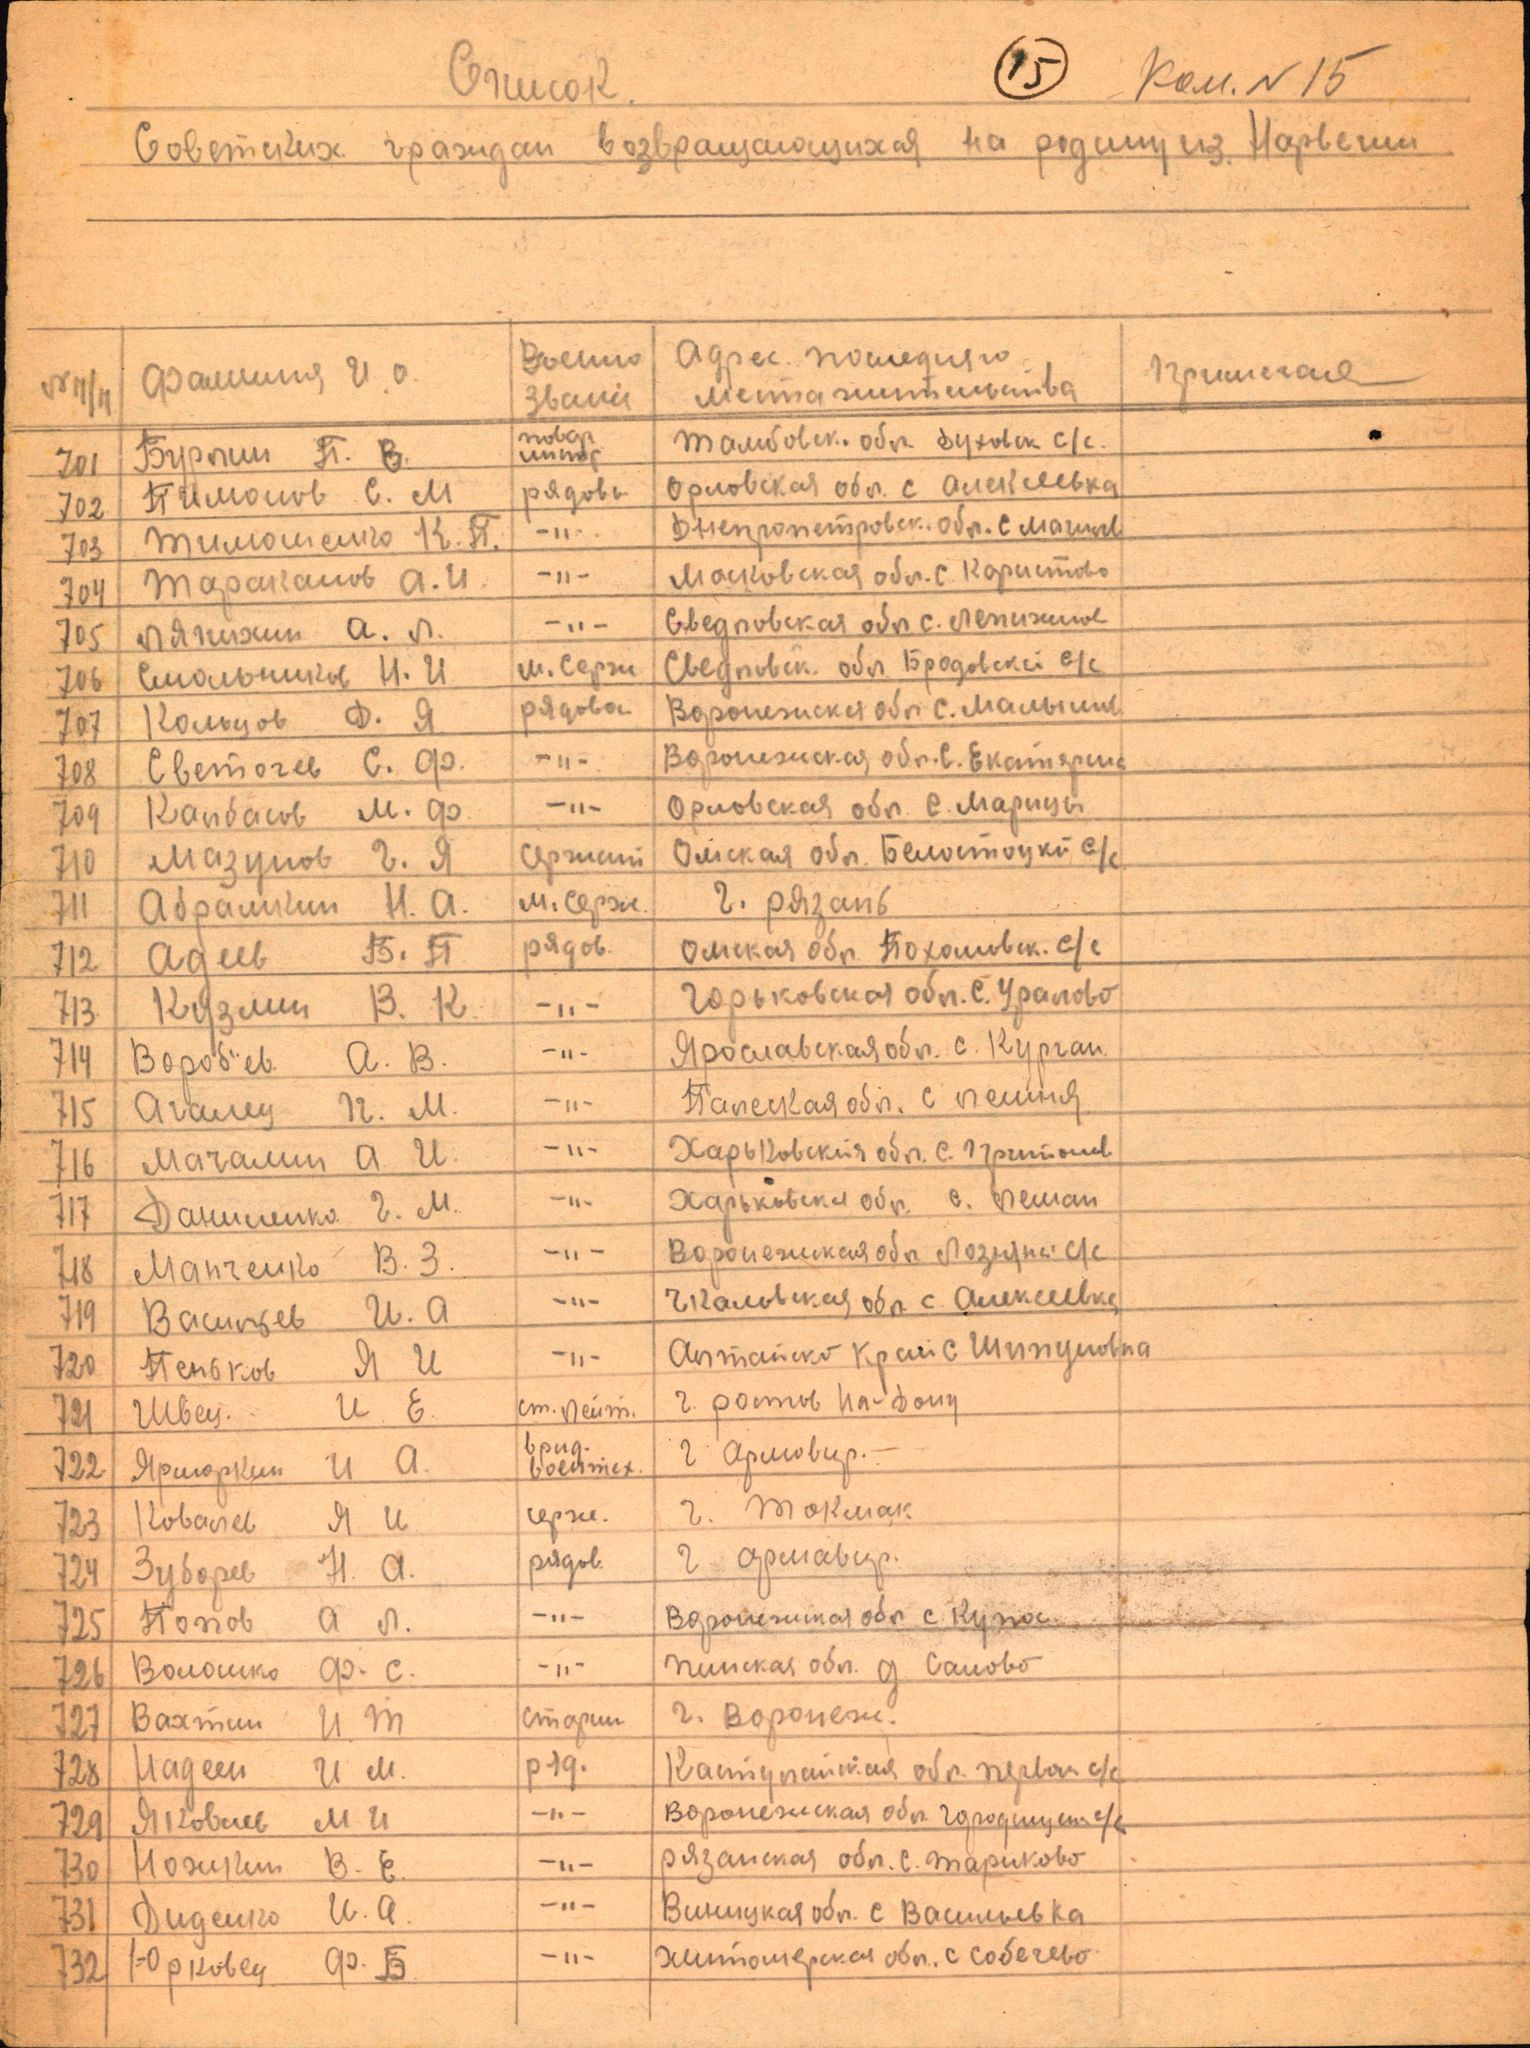 Список.
15 Ком. N 15
Советских граждан возвращающихся на родину из Нарвегии
№ п/п Фамилия И.О. Военно Звани Адрес последняго места жительства Примечая
701 Бурмин П. В. Тамбовск. обл. Духовск с/с.
702 Пимонов С. М рядовы Орловская обл. с Алексеевка
703 Тимошенко К. П. -"- Днепропетровск. обл. с
704 Тараканов А. И. -"- Московская обл. с Користово
705 Ляпихин А. Л. -"- Свердловская обл с.
706 Смольников Н. И м. Серж Сведловск. обл Бродовской с/с
707 Кольцов Д. Я рядовой Воронежская обл с.
708 Светочев С. Ф. -"- Воронежская обл. с.
709 Калбасов М. Ф -"- Орловская обл. с. Марицы
710 Мазунов Г. Я Сержант Омская обл. Белостоцкий с/с
711 Абрамкин Н. А. м. Серж. г. рязань
712 Адеев Б. П рядов. Омская обл с/с
713 Кузмин В. К. -"- Горьковская обл. с. Уралово
714 Вороб"ев А. В. -"- Ярославская обл. с. Курган
715 П. М. -"- обл. с
716 Мачалин А И. -"- Харьковская обл. с.
717 Даниленко Г. М. -"- Харьковская обл с. Леман
718 Манченко В. З. -"- Воронежская обл с/с
719 Васильев И. А -"- Чкаловская обл с Алексеевка
720 Пеньков Я И -"- Алтайско край с Шипуловка
721 Швец. И Е. ст. лейт. г. ростов На-Дону
722 Ярморкин И А. врид. воентех. г Армовир.
723 Ковалев Я И серж. г. Токмак
724 Зуборев Н. А. рядов. г армавир.
725 Попов А Л. -"- Воронежская обл с
726 Волошко Ф. С. -"- Пинская обл. д Саново
727 Вахтин И Т старши г. Воронеж.
728 Надеин И М. ряд. обл. с/с
729 Яковлев М И -"- Воронежская обл с/с
730 Ножкин В. Е. -"- рязанская обл. с. Тариково
731 Диденко И. А. -"- Виницкая обл. с Васильевка
732 Юрковец Ф. Б -"- Житомерская обл. с Собечево